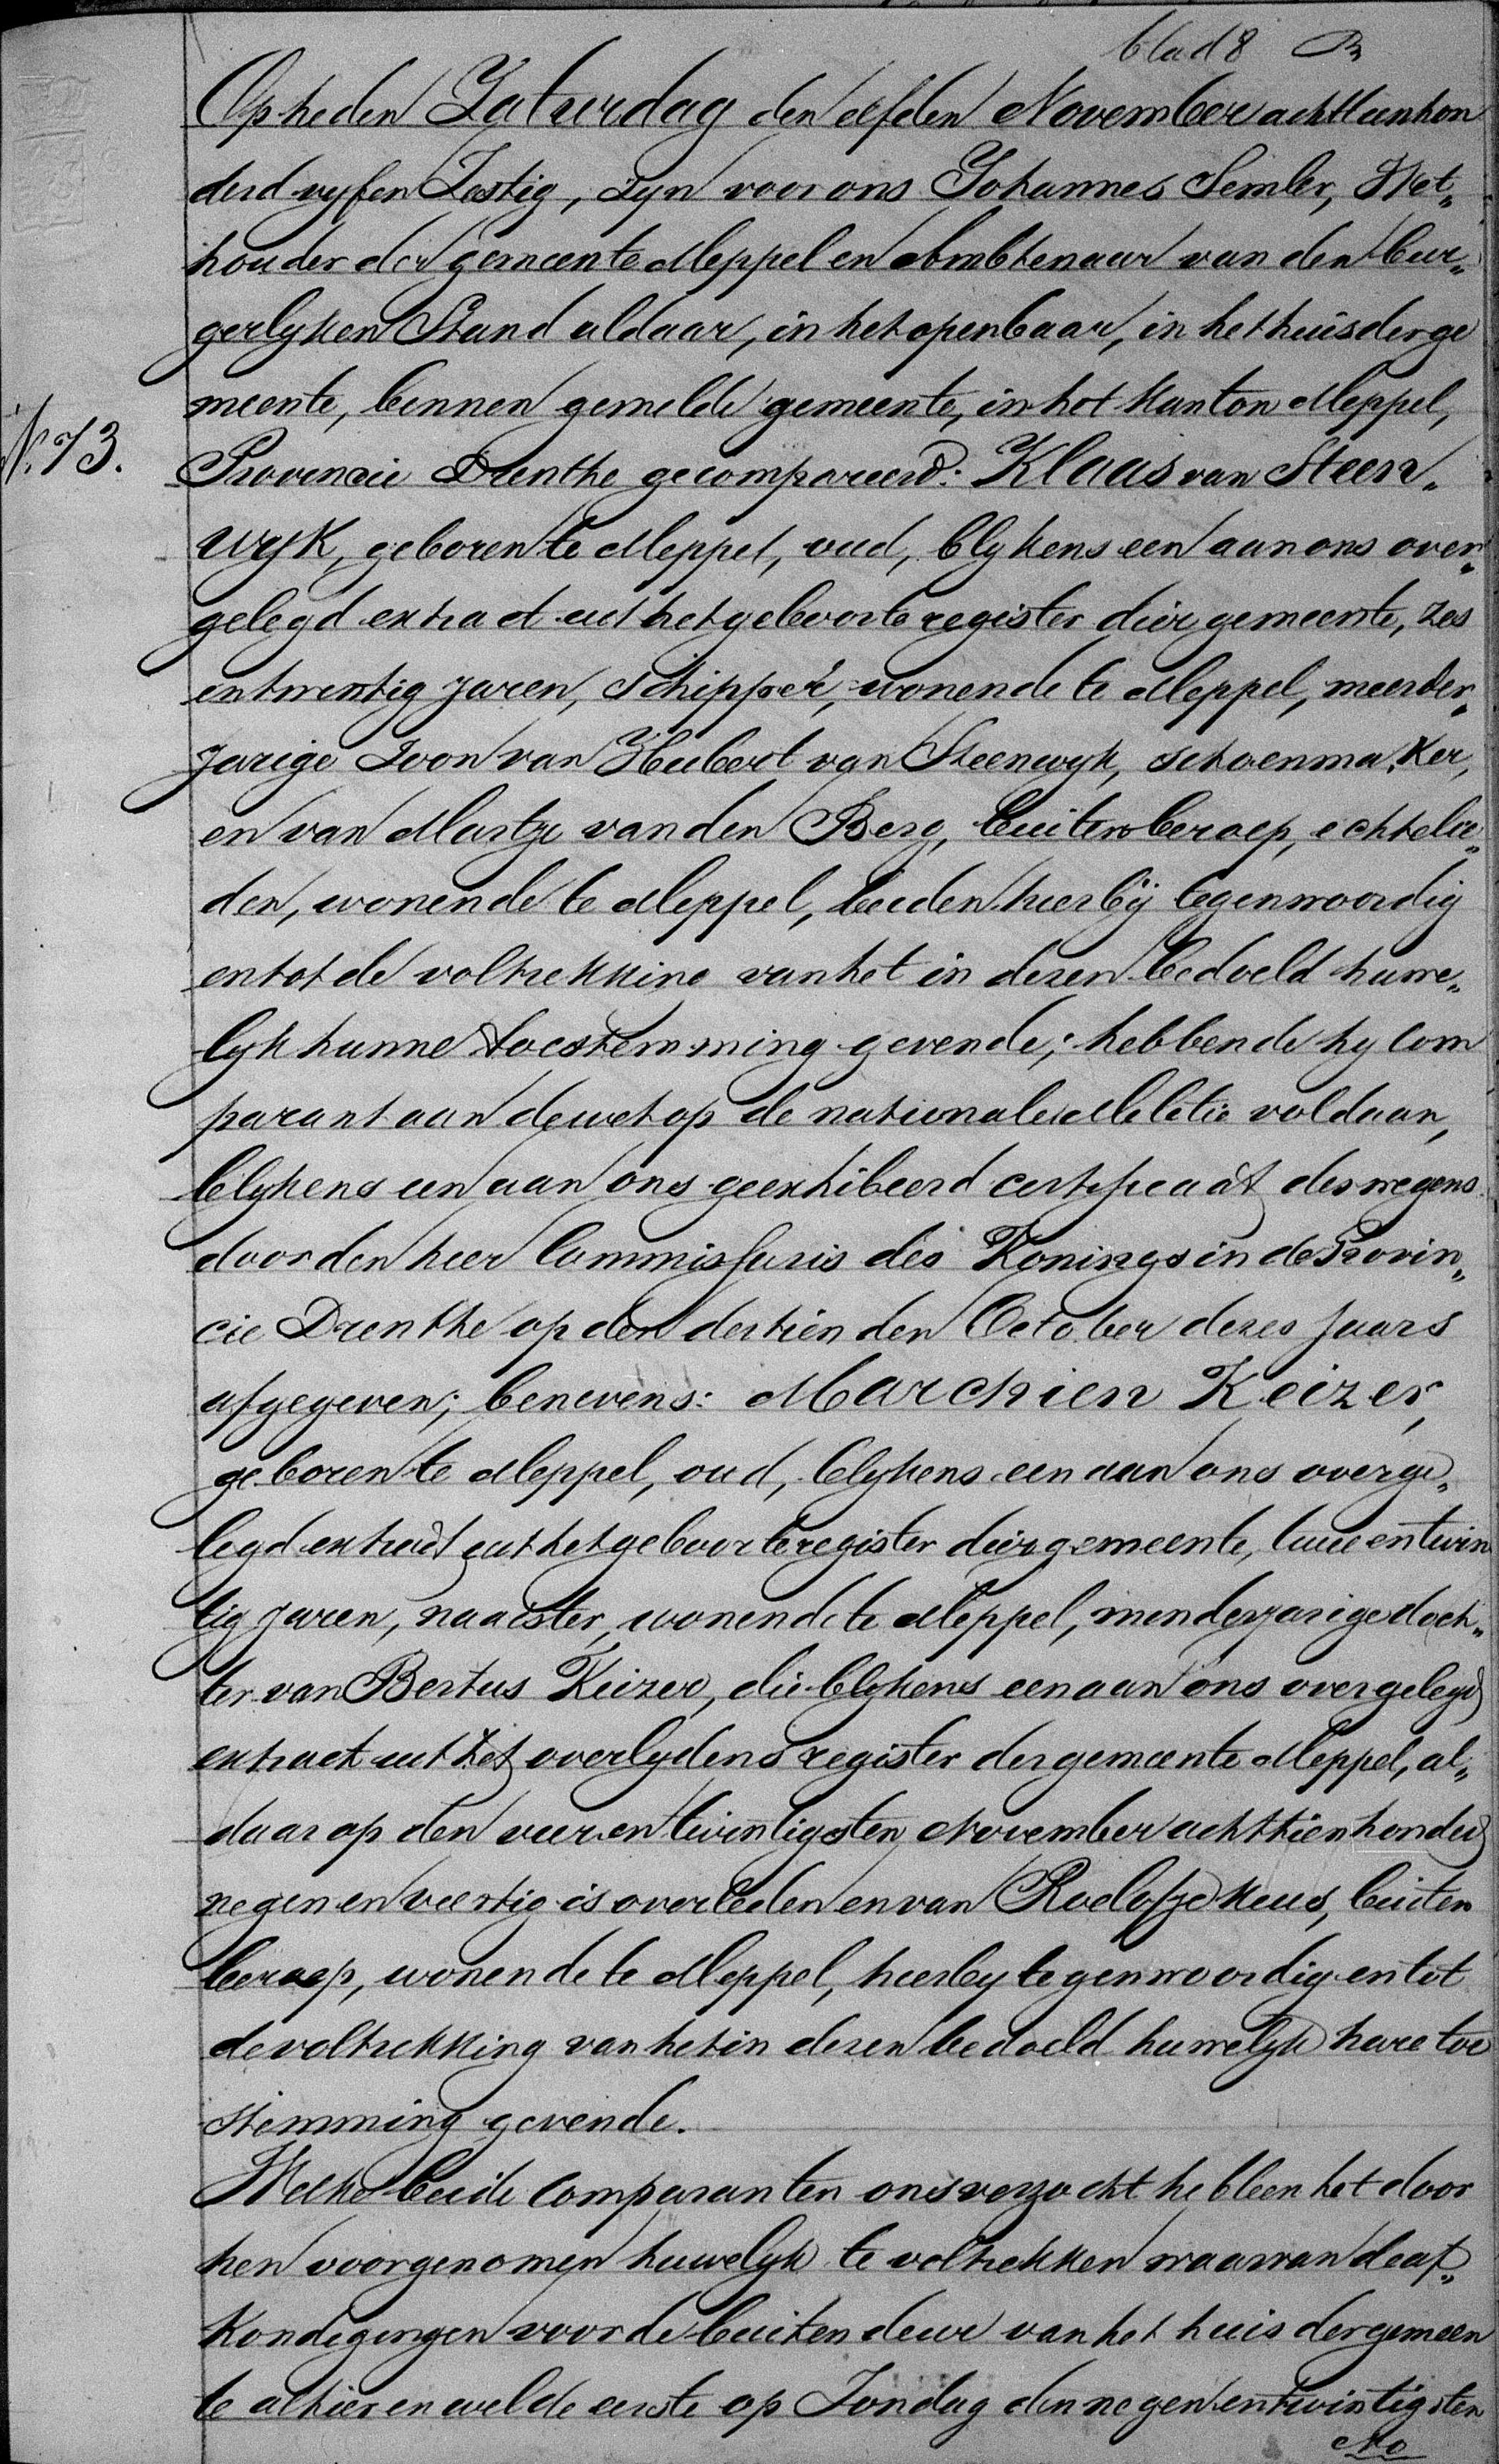 blad 8
Op heden Zaturdag den elfden November achttienhon
derd vyf en Zestig, zyn voor ons Johannes Semler, Wet„
houder der gemeente Meppel en Ambtenaar van den bur„
gerlyken Stand aldaar, in het openbaar, in het huis der ge
meente, binnen gemelde gemeente, in het kanton Meppel,
N. 73.
Provincie Drenthe gecompareerd: Klaas van Steen„
wyk, geboren te Meppel, oud, blykens een aan ons over„
gelegd extract uit het geboorte register dier gemeente, zes
entwintig jaren, schipper, wonende te Meppel, meerder„
jarige zoon van Huibert van Steenwyk, schoenmaker,
en van Martje van den Berg, buiten beroep, echtelie„
den, wonende te Meppel, beiden hierby tegenwoordig
en tot de voltrekking van het in dezen bedoeld huwe„
lyk hunne toestemming gevende; hebbende hy Com
parant aan de wet op de nationale Militie voldaan,
blykens een aan ons geexhibeerd certificaat deswegens
door den heer Commissaris des Konings in de Provin„
cie Drenthe op den dertienden October dezes jaars
afgegeven; benevens: Marchien Keizer,
geboren te Meppel, oud, blykens een aan ons overge„
legd extract uit het geboorteregister dier gemeente, twee entwin
tig jaren, naaister, wonende te Meppel, minderjarige doch„
ter van Bertus Keizer, die blykens een aan ons overgelegd
extract uit het overlydens register der gemeente Meppel, al„
daar op den vier en twintigsten November achttienhonderd
negen en veertig is overleden en van Roelofje Keus, buiten
beroep, wonende te Meppel, hierby tegenwoordig en tot
de voltrekking van het in dezen bedoeld huwelyk hare toe
stemming gevende.
Welke beide Comparanten ons verzocht hebben het door
hen voorgenomen huwelyk te voltrekken waarvan de af„
kondigingen voor de buiten deur van het huis der gemeen
te alhier en wel de eerste op Zondag den negen entwintigsten
No